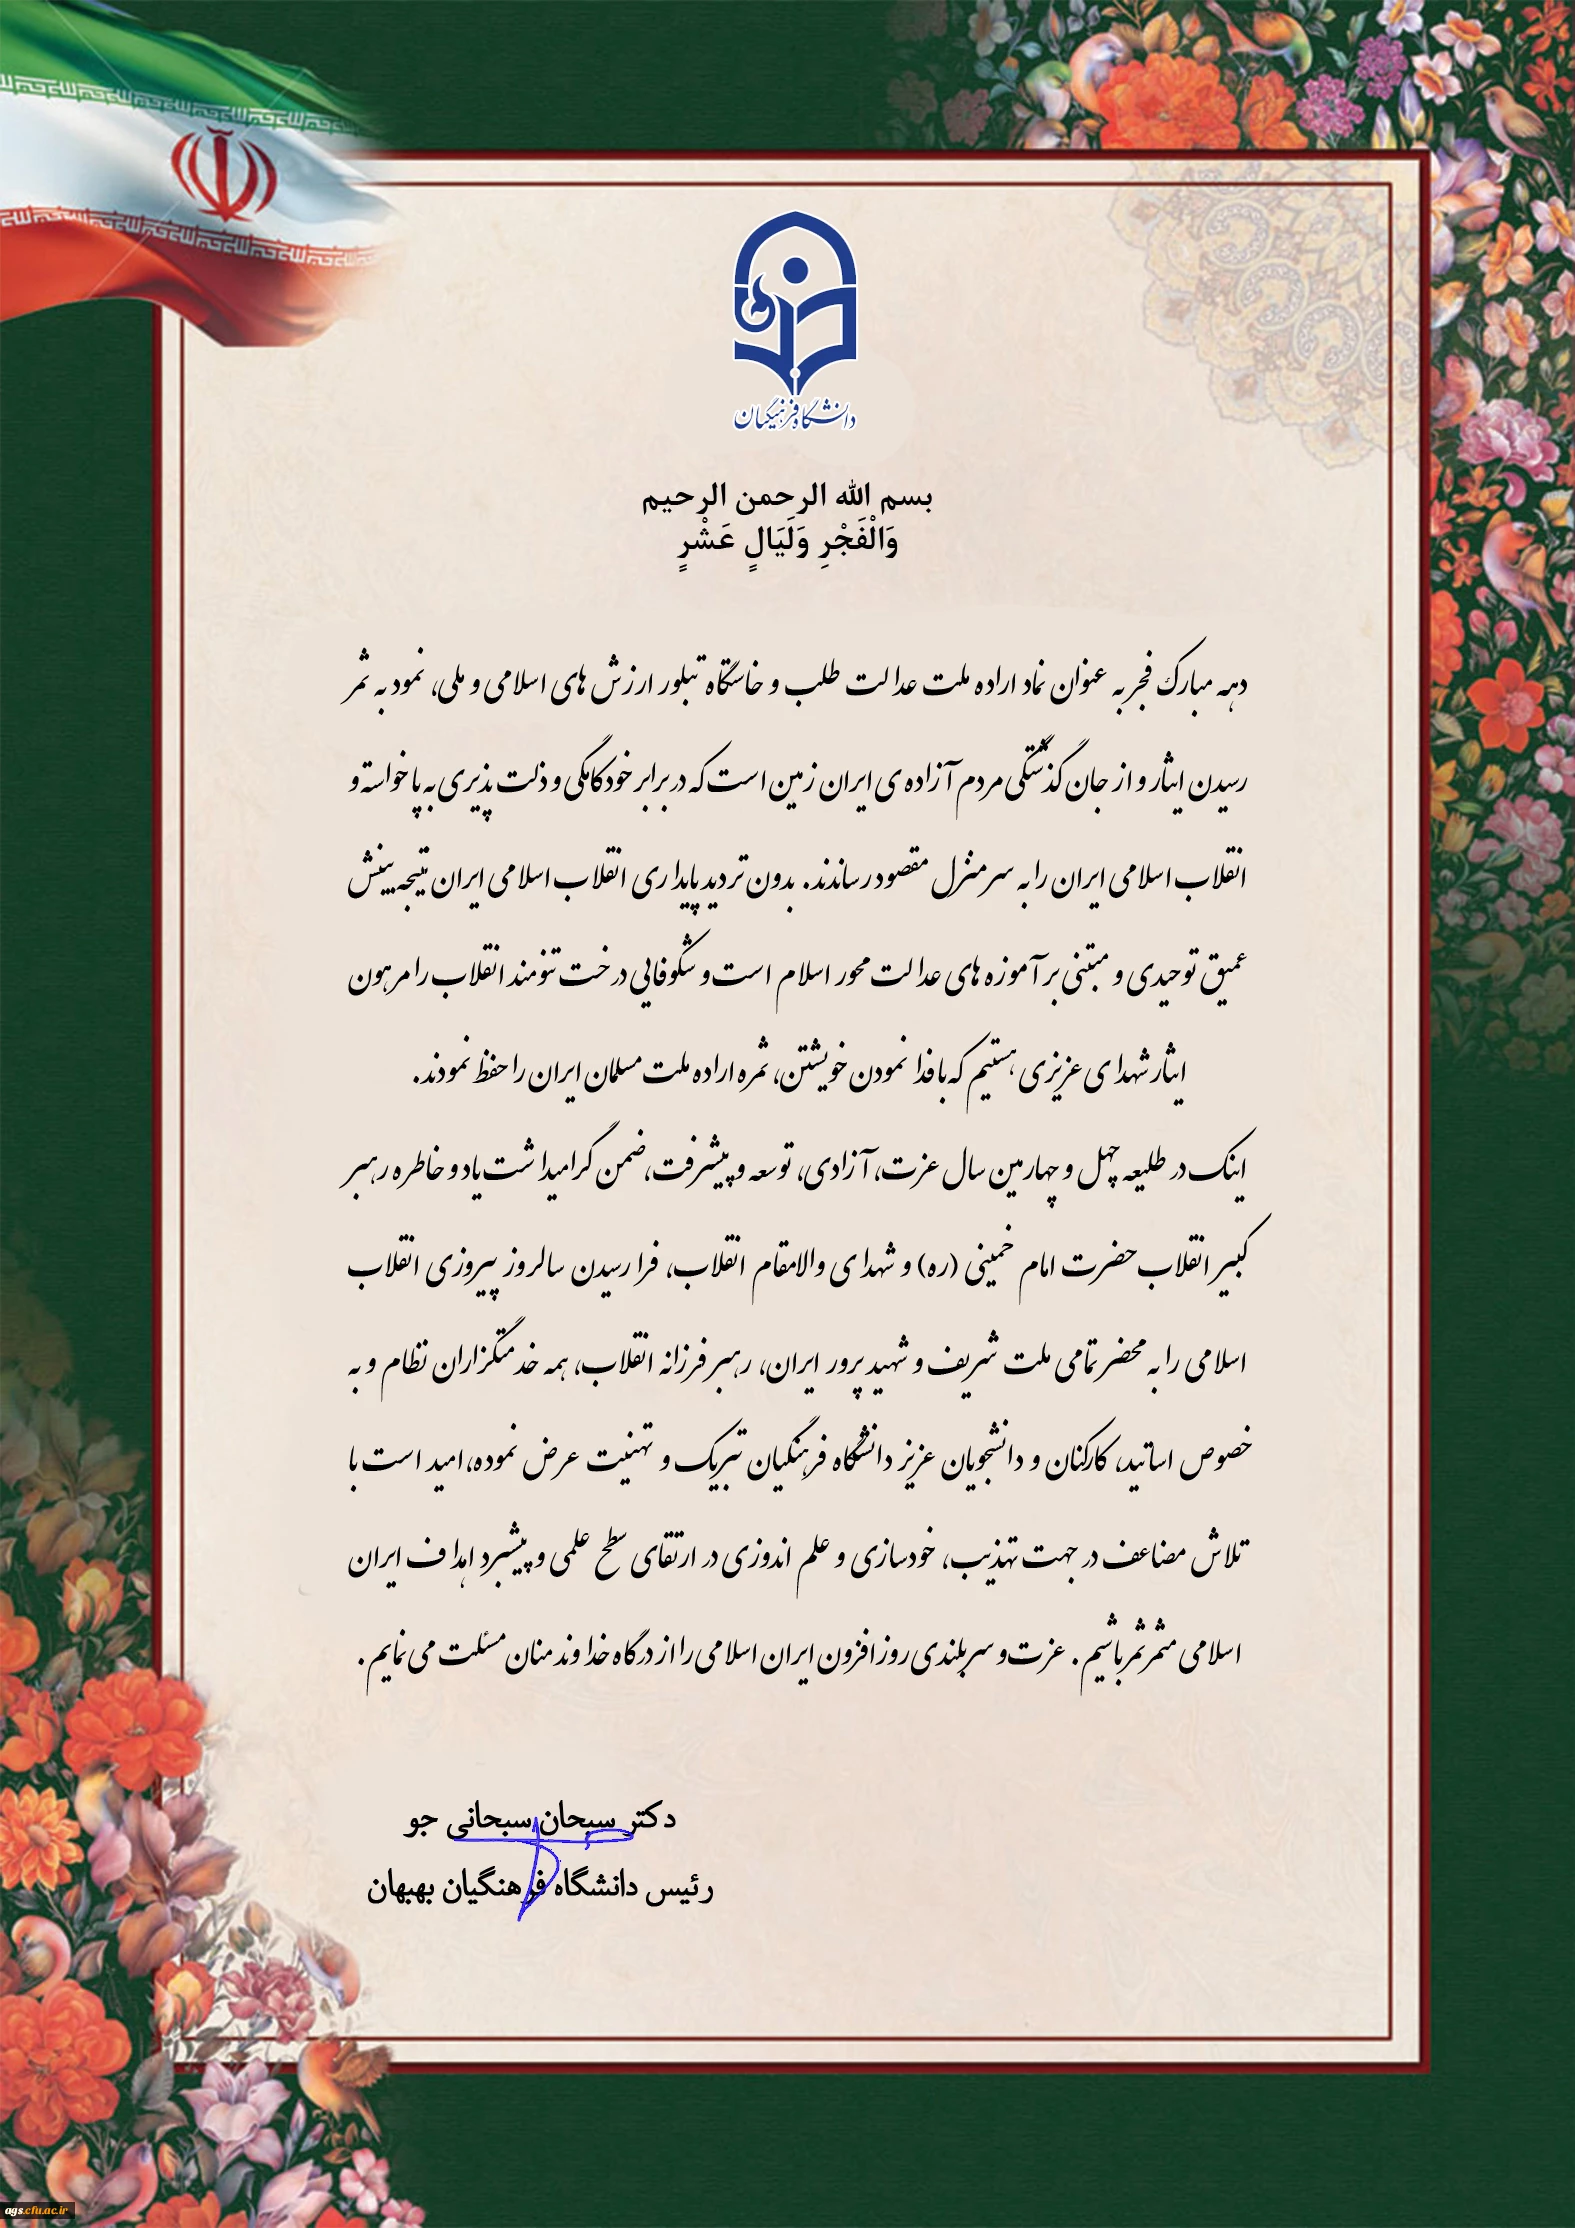 دانشگاه فرهنگیان
بسم الله الرحمن الرحیم
وَالْفَجْرِ وَلَيَالٍ عَشْرٍ
دهه مبارک فجر به عنوان نماد اراده ملت عدالت طلب و خاستگاه تبلور ارزش های اسلامی و ملی، نمود به ثمر
رسیدن ایثار و از جان گذشتگی مردم آزاده ی ایران زمین است که در برابر خودکامگی و ذلت پذیری به پا خواسته و
انقلاب اسلامی ایران را به سر منزل مقصود رساندند. بدون تردید پایداری انقلاب اسلامی ایران نتیجه بینش
عمیق توحیدی و مبتنی بر آموزه های عدالت محور اسلام است و شکوفایی درخت تنومند انقلاب را مرهون
ایثار شهدای عزیزی هستیم که با فدا نمودن خویشتن، ثمره اراده ملت مسلمان ایران را حفظ نمودند.
اینک در طلیعه چهل و چهارمین سال عزت، آزادی، توسعه و پیشرفت، ضمن گرامیداشت یاد و خاطره رهبر
کبیر انقلاب حضرت امام خمینی (ره) و شهدای والامقام انقلاب، فرا رسیدن سالروز پیروزی انقلاب
اسلامی را به محضر تمامی ملت شریف و شهید پرور ایران، رهبر فرزانه انقلاب، همه خدمتگزاران نظام و به
خصوص اساتید، کارکنان و دانشجویان عزیز دانشگاه فرهنگیان تبریک و تهنیت عرض نموده، امید است با
تلاش مضاعف در جهت تهذیب، خودسازی و علم اندوزی در ارتقای سطح علمی و پیشبرد اهداف ایران
اسلامی مثمر ثمر باشیم. عزت و سربلندی روز افزون ایران اسلامی را از درگاه خداوند منان مسئلت می نمایم.
دکتر سبحان سبحانی جو
رئیس دانشگاه فرهنگیان بهبهان
ags.cfu.ac.ir